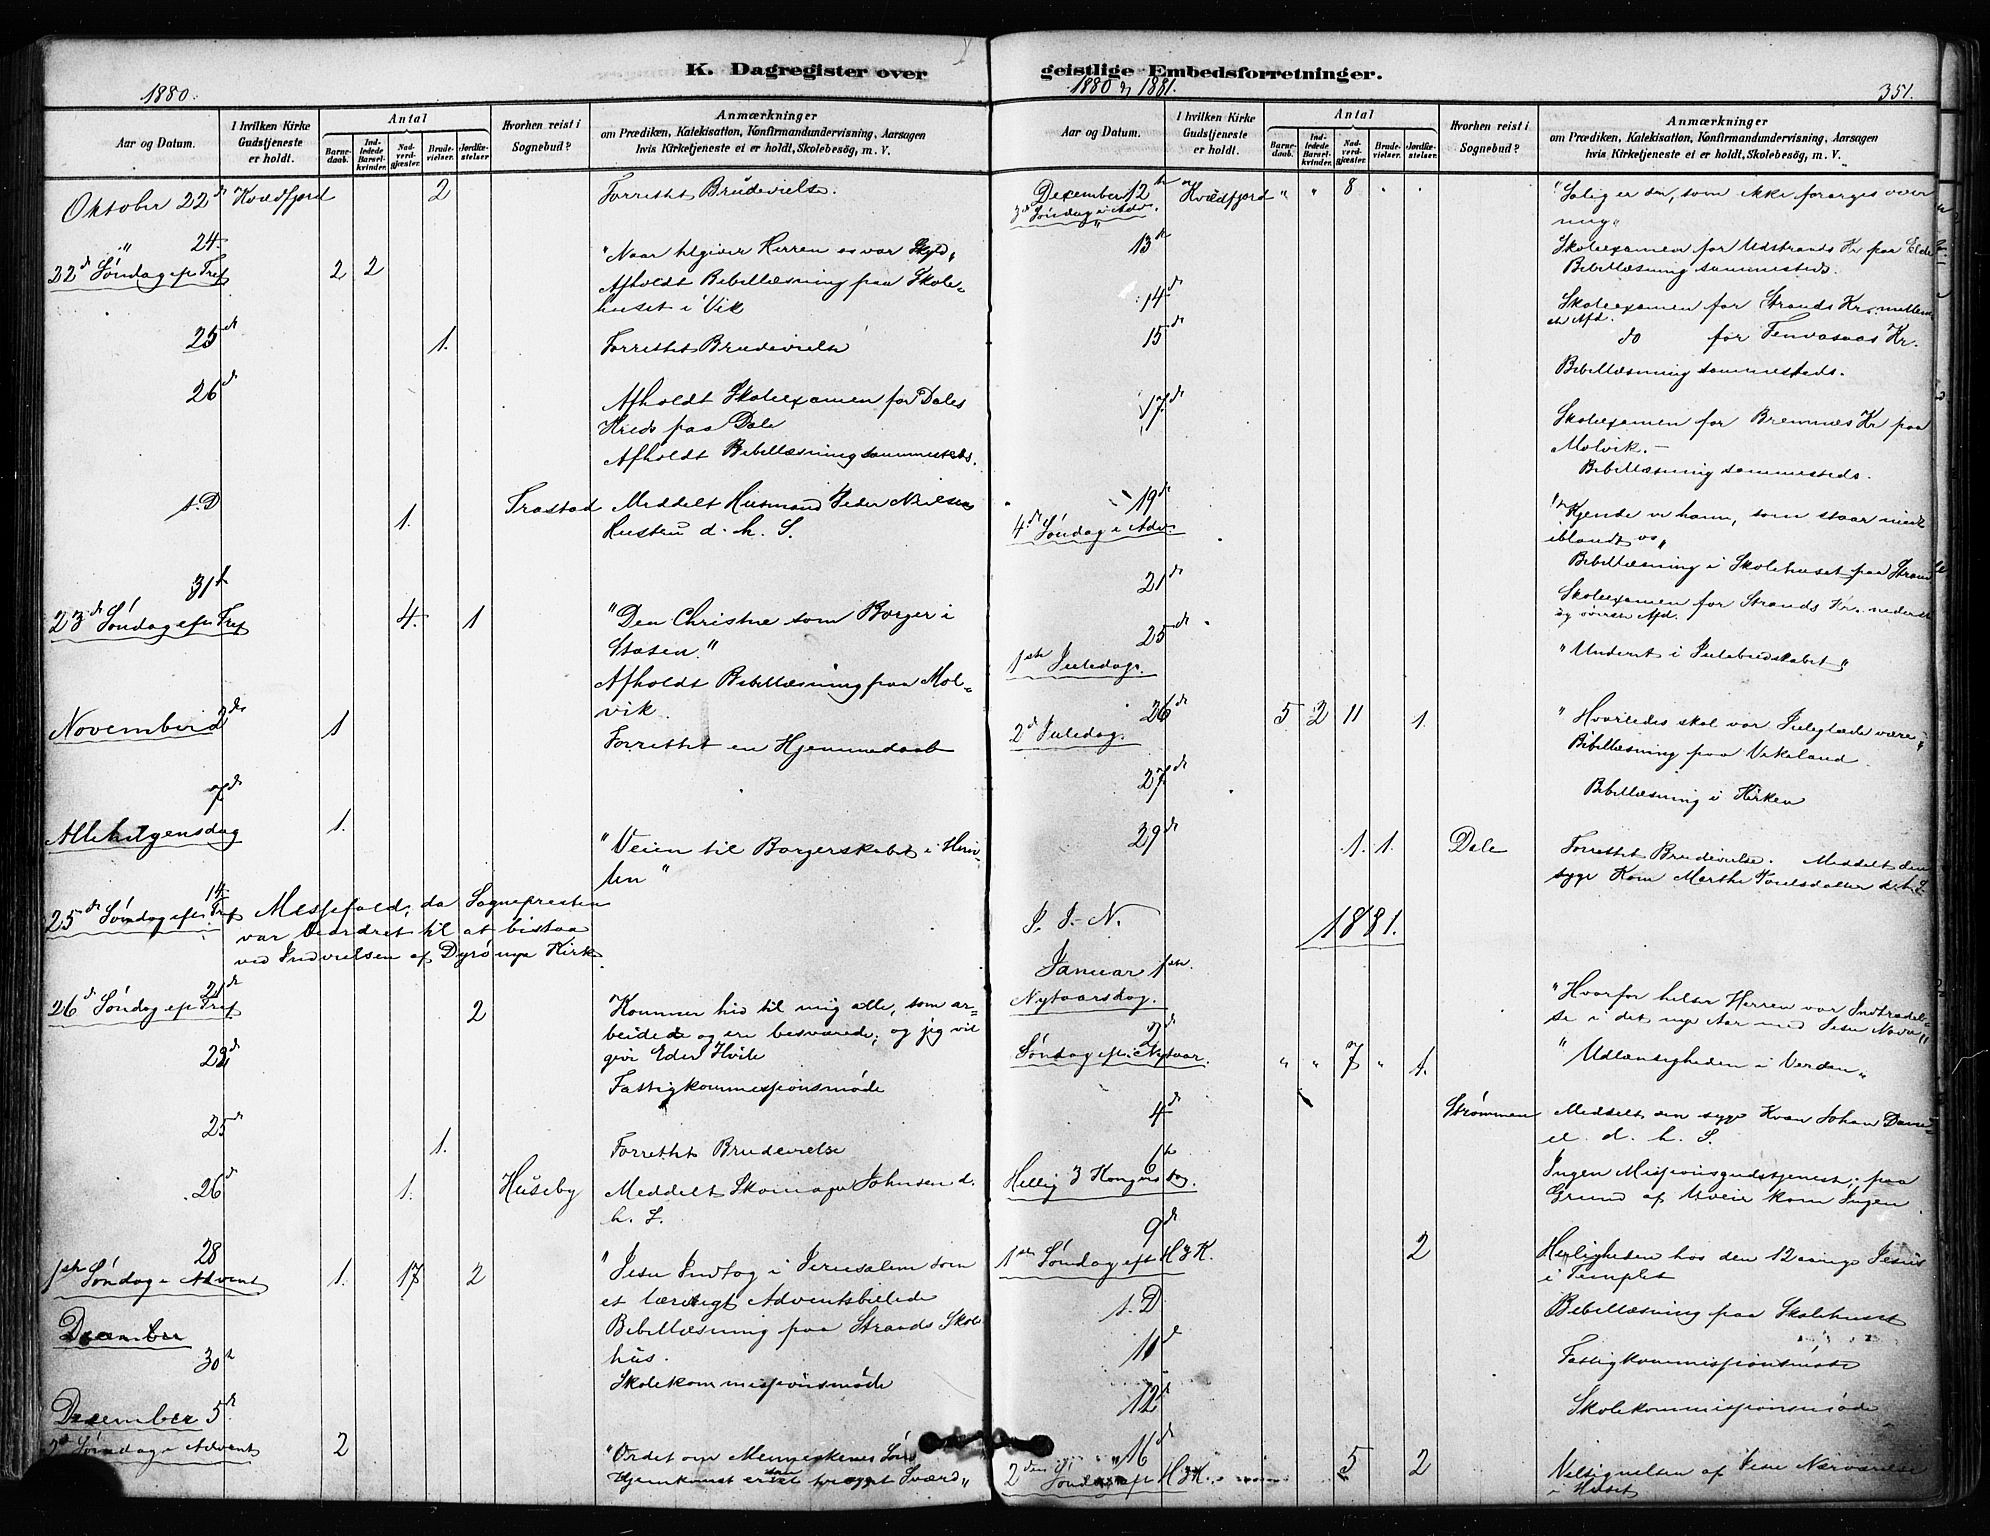 K. Dagregister over
1880.
Aar og Datum.
I hvilken Kirke Gudstjeneste er holdt.
Antal
Barne-daab.
Ind-ledede Barsel-kvinder.
Nad-verd-gjæster.
Brude-vielser.
Jordfæ-stelser
Hvorhen reist i Sognebud?
Anmærkninger
om Prædiken, Katekisation, Konfirmandundervisning, Aarsagen
hvis Kirketjeneste ei er holdt, Skolebesøg, m. V.
Oktober 22d Kvædfjord 2 Forrettet Brudevielse.
" 24.
22d Søndag ef Tref 2 2 "Naar tilgiver Herren os vor Skyld"
Afholdt Bibellæsning paa Skole-
huset i Vik
25de 1. Forrettet Brudevielse
26d Afholdt Skoleexamen for Dales
Kreds paa Dale
Afholdt Bibellæsning sammesteds.
s. D 1. Trastad Meddelt Husmand Peder Nielsens
Hustru d. h. S.
31d
23d Søndag ef Tref 4. 1 "Den Christne som Borger i
Staten."
Afholdt Bibellæsning paa Mol-
vik.
November 2den 1 Forrettet en Hjemmedaab
7de
Allehelgensdag 1. "Veien til Borgerskabet i Him-
len"
14.
25de Søndag ef Tref Messefald, da Sognepresten
var beordret til at bistaa
ved Indvielsen af Dyrø nye Kirke
21de
26d Søndag ef Tref 2 Kommer hid til mig alle, som ar-
beide og ere besværede; og jeg vil
give Eder Hvile
22d Fattigkommissionsmøde
25de 1. Forrettet Brudevielse
26d 1. Huseby Meddelt Skomager Johnsen d.
h. S.
28
1ste Søndag i Advent 1. 17 2 "Jesu Indtog i Jerusalem som
et lærerigt Adventsbillede
Bibellæsning paa Strands Skole
hus.
December
30te Skolekommissionsmøde
December 5d.
2d Søndag i Advent 2 "Ordet om Menneskenes Søns
Gjenkomst er et tveægget Sværd"
geistlige Embedsforretninger.
1880 og 1881. 351.
Aar og Datum.
I hvilken Kirke Gudstjeneste er holdt.
Antal
Barne-daab.
Ind-ledede Barsel-kvinder.
Nad-verd-gjæster.
Brude-vielser.
Jordfæ-stelser.
Hvorhen reist i Sognebud?
Anmærkninger
om Prædiken, Katekisation, Konfirmandundervisning, Aarsagen
hvis Kirketjeneste ei er holdt, Skolebesøg, m. V.
December 12te Kvædfjord " " 8 " " "Salig er den, som ikke forarges over
3de Søndag i Adv. mig"
13de Skoleexamen for Udstrands Kr paa Elde
Bibellæsning sammesteds.
14de Skoleexamen for Strands Kr. mellem
ste Afd.
15de do for Tenvasaas Kr.
Bibellæsning sammesteds.
17de Skoleexamen for Bremnes Kr paa
Molvik.
Bibellæsning sammesteds.
19de
4de Søndag i Adv. "Kjende vi ham, som staar midt
iblandt os"
Bibellæsning i Skolehuset paa Strand
21de Skoleexamen for Strands Kr. nederste
og øverste Afd.
25de
1ste Juledag. "Underet i Julebudskabet"
26de 5 2 11 1. "Hvorledes skal vor Juleglæde være"
2d Juledag. Bibellæsning paa Vikeland.
27de Bibellæsning i Kirken
29de 1. 1. Dale Forrettet Brudevielse. Meddelt den
syge Kone Marthe d. h. S
I. J. N. 1881.
Januar 1ste
Nytaarsdag. "Hvorfor helst Herren vor Indtrædel-
se i det nye Aar med Jesu Navn"
2de
Søndag eft. Nytaar. " " 7 " 1. "Udlændigheden i Verden"
4de Strømmen Meddelt den syge Johan Dani-
el d. h. S.
6te
Hellig 3 Kongers dag. Ingen Missionsgudstjeneste; paa
Grund af Uveir kom Ingen
9de
1ste Søndag eft H3K. 2 Herligheden hos den 12 aarige Jesus
i Templet
s. D Bibellæsning paa Skolehuset
11te Fattigkommissionsmøde
12te Skolekommissionsmøde
16de
2den Søndag ef H3K. 5 2 Velsignelsen af Jesu Nærværelse
i Huset